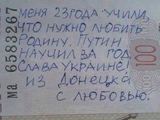 меня 23 года учили,
что нужно любить
Родину. Путин
научил за год
Слава Украине!
из Донецка
с любовью.
100
МА 6583267